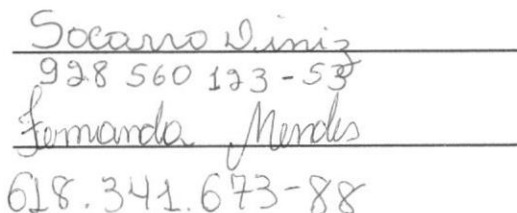 Socorro Diniz
928 560 123-53
Fernanda Mendes
618.341.673-88